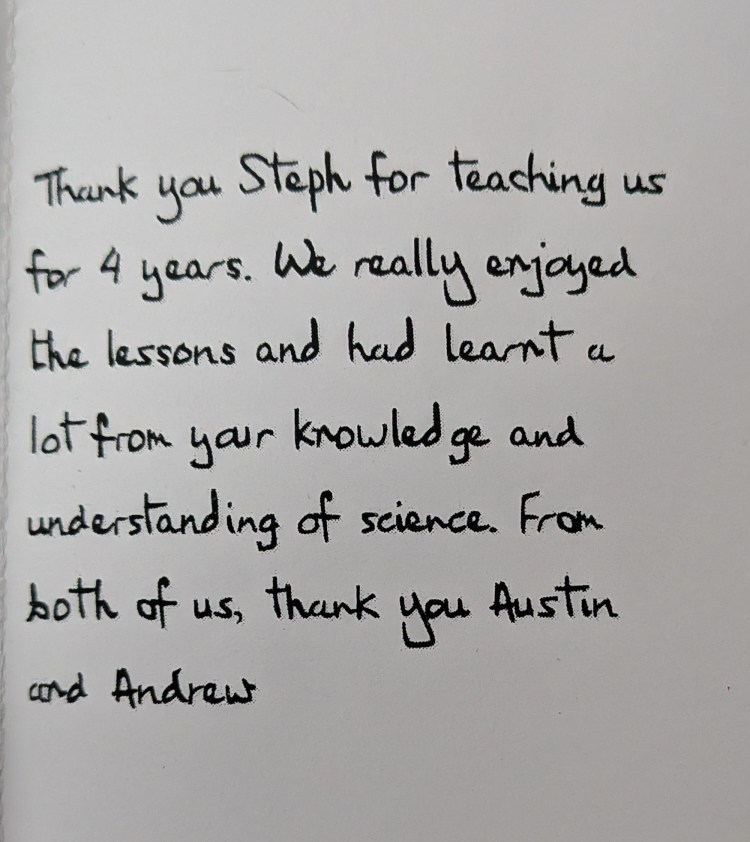 Thank you Steph for teaching us
for 4 years. We really enjoyed
the lessons and had learnt a
lot from your knowledge and
understanding of science. From
both of us, thank you Austin
and Andrew